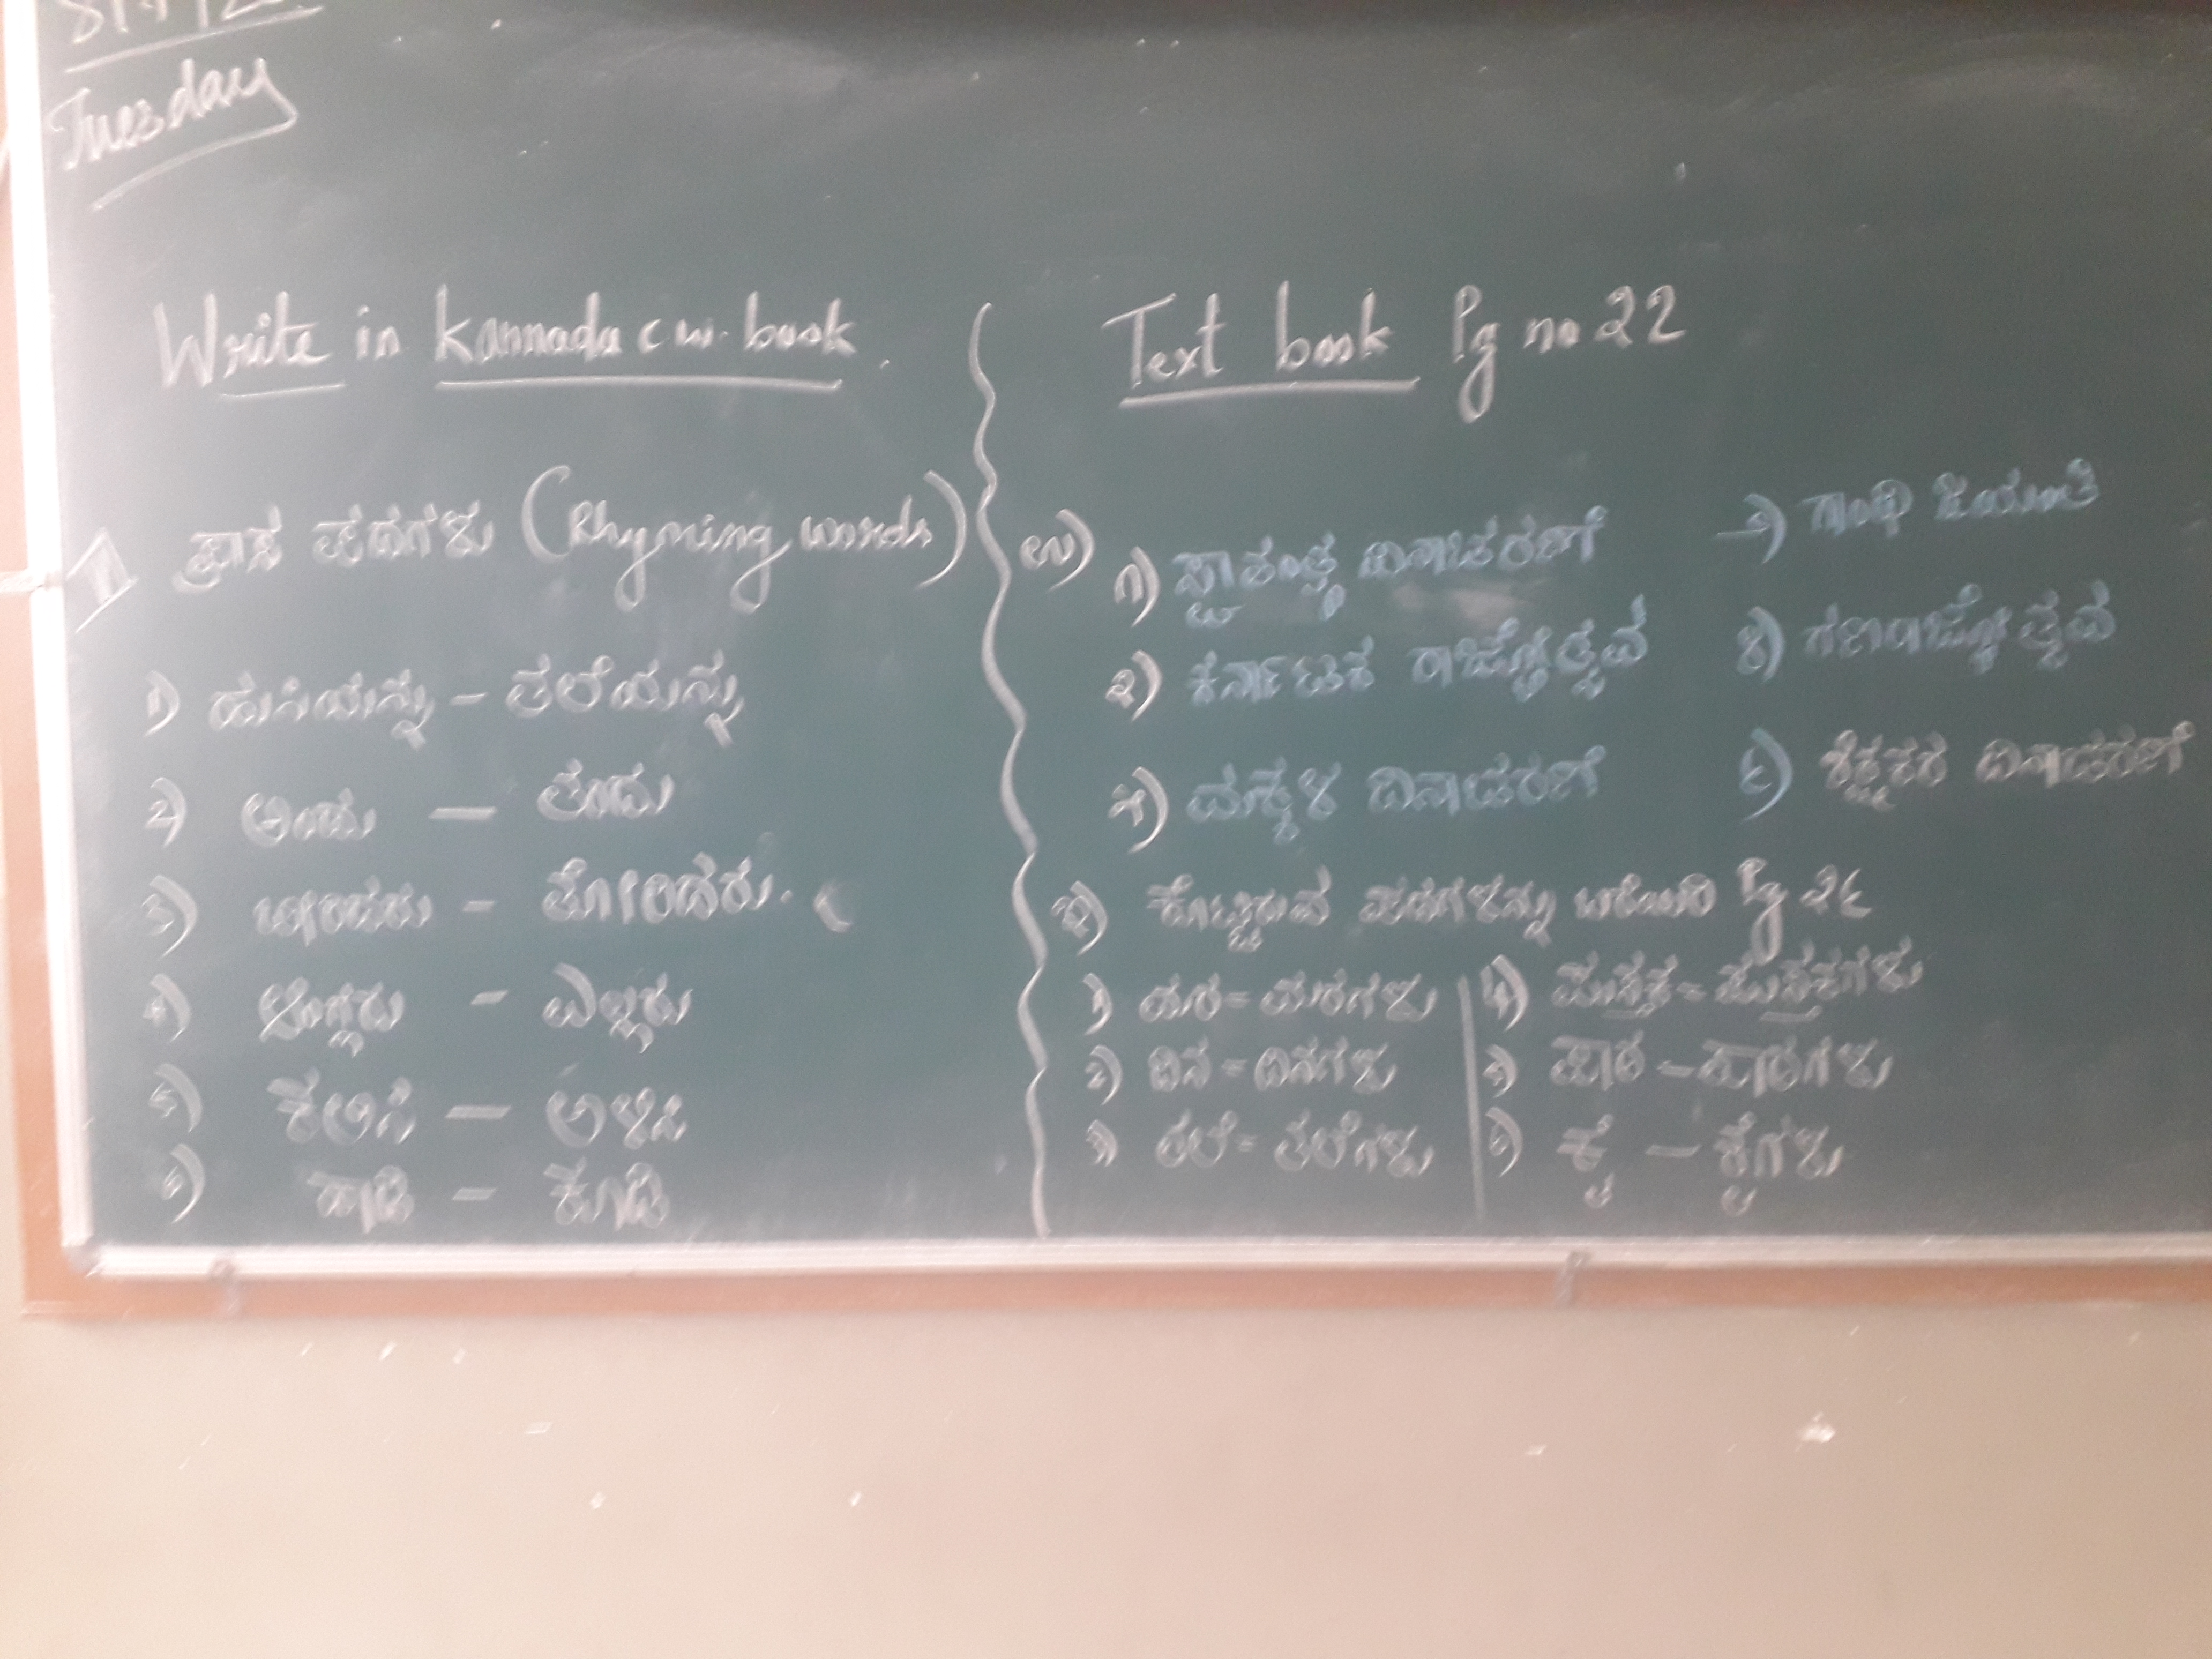 Tuesday
Write in Kannada c w. book.
ಪ್ರಾಸ ಪದಗಳು (Rhyming words)
೧) ಹುಸಿಯನ್ನು - ತಲೆಯನ್ನು
೨) ಅಂದು - ತಂದು
೩) - ತೋರಿದರು.
೪) - ಎಲ್ಲರು
೫) ಕಲಿಸಿ - ಅಳಿಸಿ
೬) ಹಾಡಿ - ಕೂಡಿ
Text book Pg no 22
೧) ಸ್ವಾತಂತ್ರ್ಯ ದಿನಾಚರಣೆ
೨) ಕರ್ನಾಟಕ ರಾಜ್ಯೋತ್ಸವ
೩) ಮಕ್ಕಳ ದಿನಾಚರಣೆ
ಗಾಂಧಿ ಜಯಂತಿ
೪) ಗಣರಾಜ್ಯೋತ್ಸವ
೬) ಶಿಕ್ಷಕರ ದಿನಾಚರಣೆ
ಕೊಟ್ಟಿರುವ ಪದಗಳನ್ನು ಬರೆಯಿರಿ Pg ೨೬
೧) ಮರ = ಮರಗಳು
೨) ದಿನ = ದಿನಗಳು
೩) ತಲೆ = ತಲೆಗಳು
೪) ಪುಸ್ತಕ = ಪುಸ್ತಕಗಳು
೫) ಪಾಠ - ಪಾಠಗಳು
೬) ಕೈ - ಕೈಗಳು